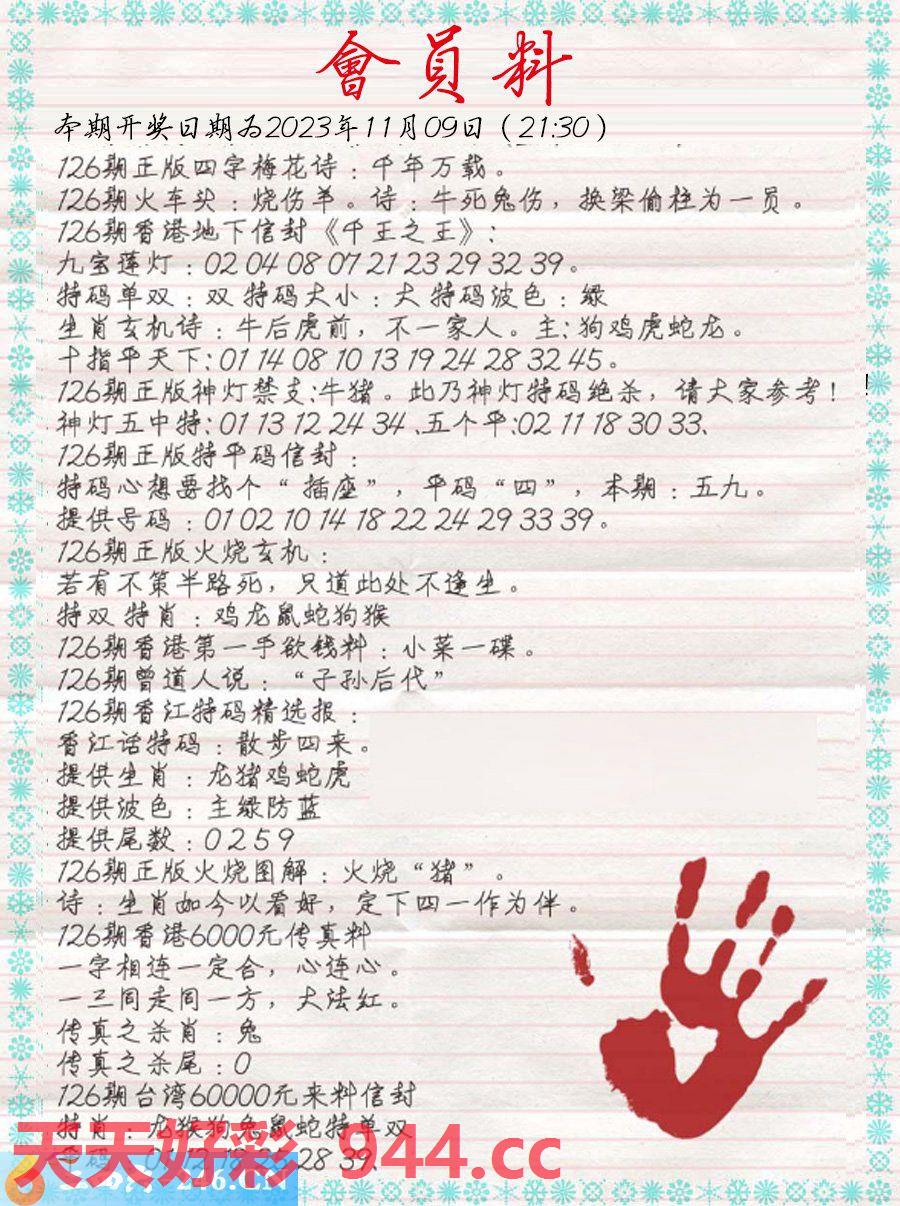 會員料
本期开奖日期为2023年11月09日（21:30）
126期正版四字梅花诗：千年万载。
126期火车头：烧伤羊。诗：牛死兔伤，换梁偷柱为一员。
126期香港地下信封《千王之王》：
九宝莲灯：02 04 08 07 21 23 29 32 39。
特码单双：双 特码大小：大 特码波色：绿
生肖玄机诗：牛后虎前，不一家人。主：狗鸡虎蛇龙。
十指平天下：01 14 08 10 13 19 24 28 32 45。
126期正版神灯禁支：牛猪。此乃神灯特码绝杀，请大家参考！
神灯五中特：01 13 12 24 34、五个平：02 11 18 30 33、
126期正版特平码信封：
特码心想要找个“插座”，平码“四”，本期：五九。
提供号码：01 02 10 14 18 22 24 29 33 39。
126期正版火烧玄机：
若有不策半路死，只道此处不逢生。
特双 特肖：鸡龙鼠蛇狗猴
126期香港第一手欲钱料：小菜一碟。
126期曾道人说：“子孙后代”
126期香江特码精选报：
香江话特码：散步四来。
提供生肖：龙猪鸡蛇虎
提供波色：主绿防蓝
提供尾数：0 2 5 9
126期正版火烧图解：火烧“猪”。
诗：生肖如今以看好，定下四一作为伴。
126期香港6000元传真料
一字相连一定合，心连心。
一三同走同一方，大法红。
传真之杀肖：兔
传真之杀尾：0
126期台湾60000元来料信封
特肖：龙猴狗兔鼠蛇特单双
28 39、
天天好彩 944.cc